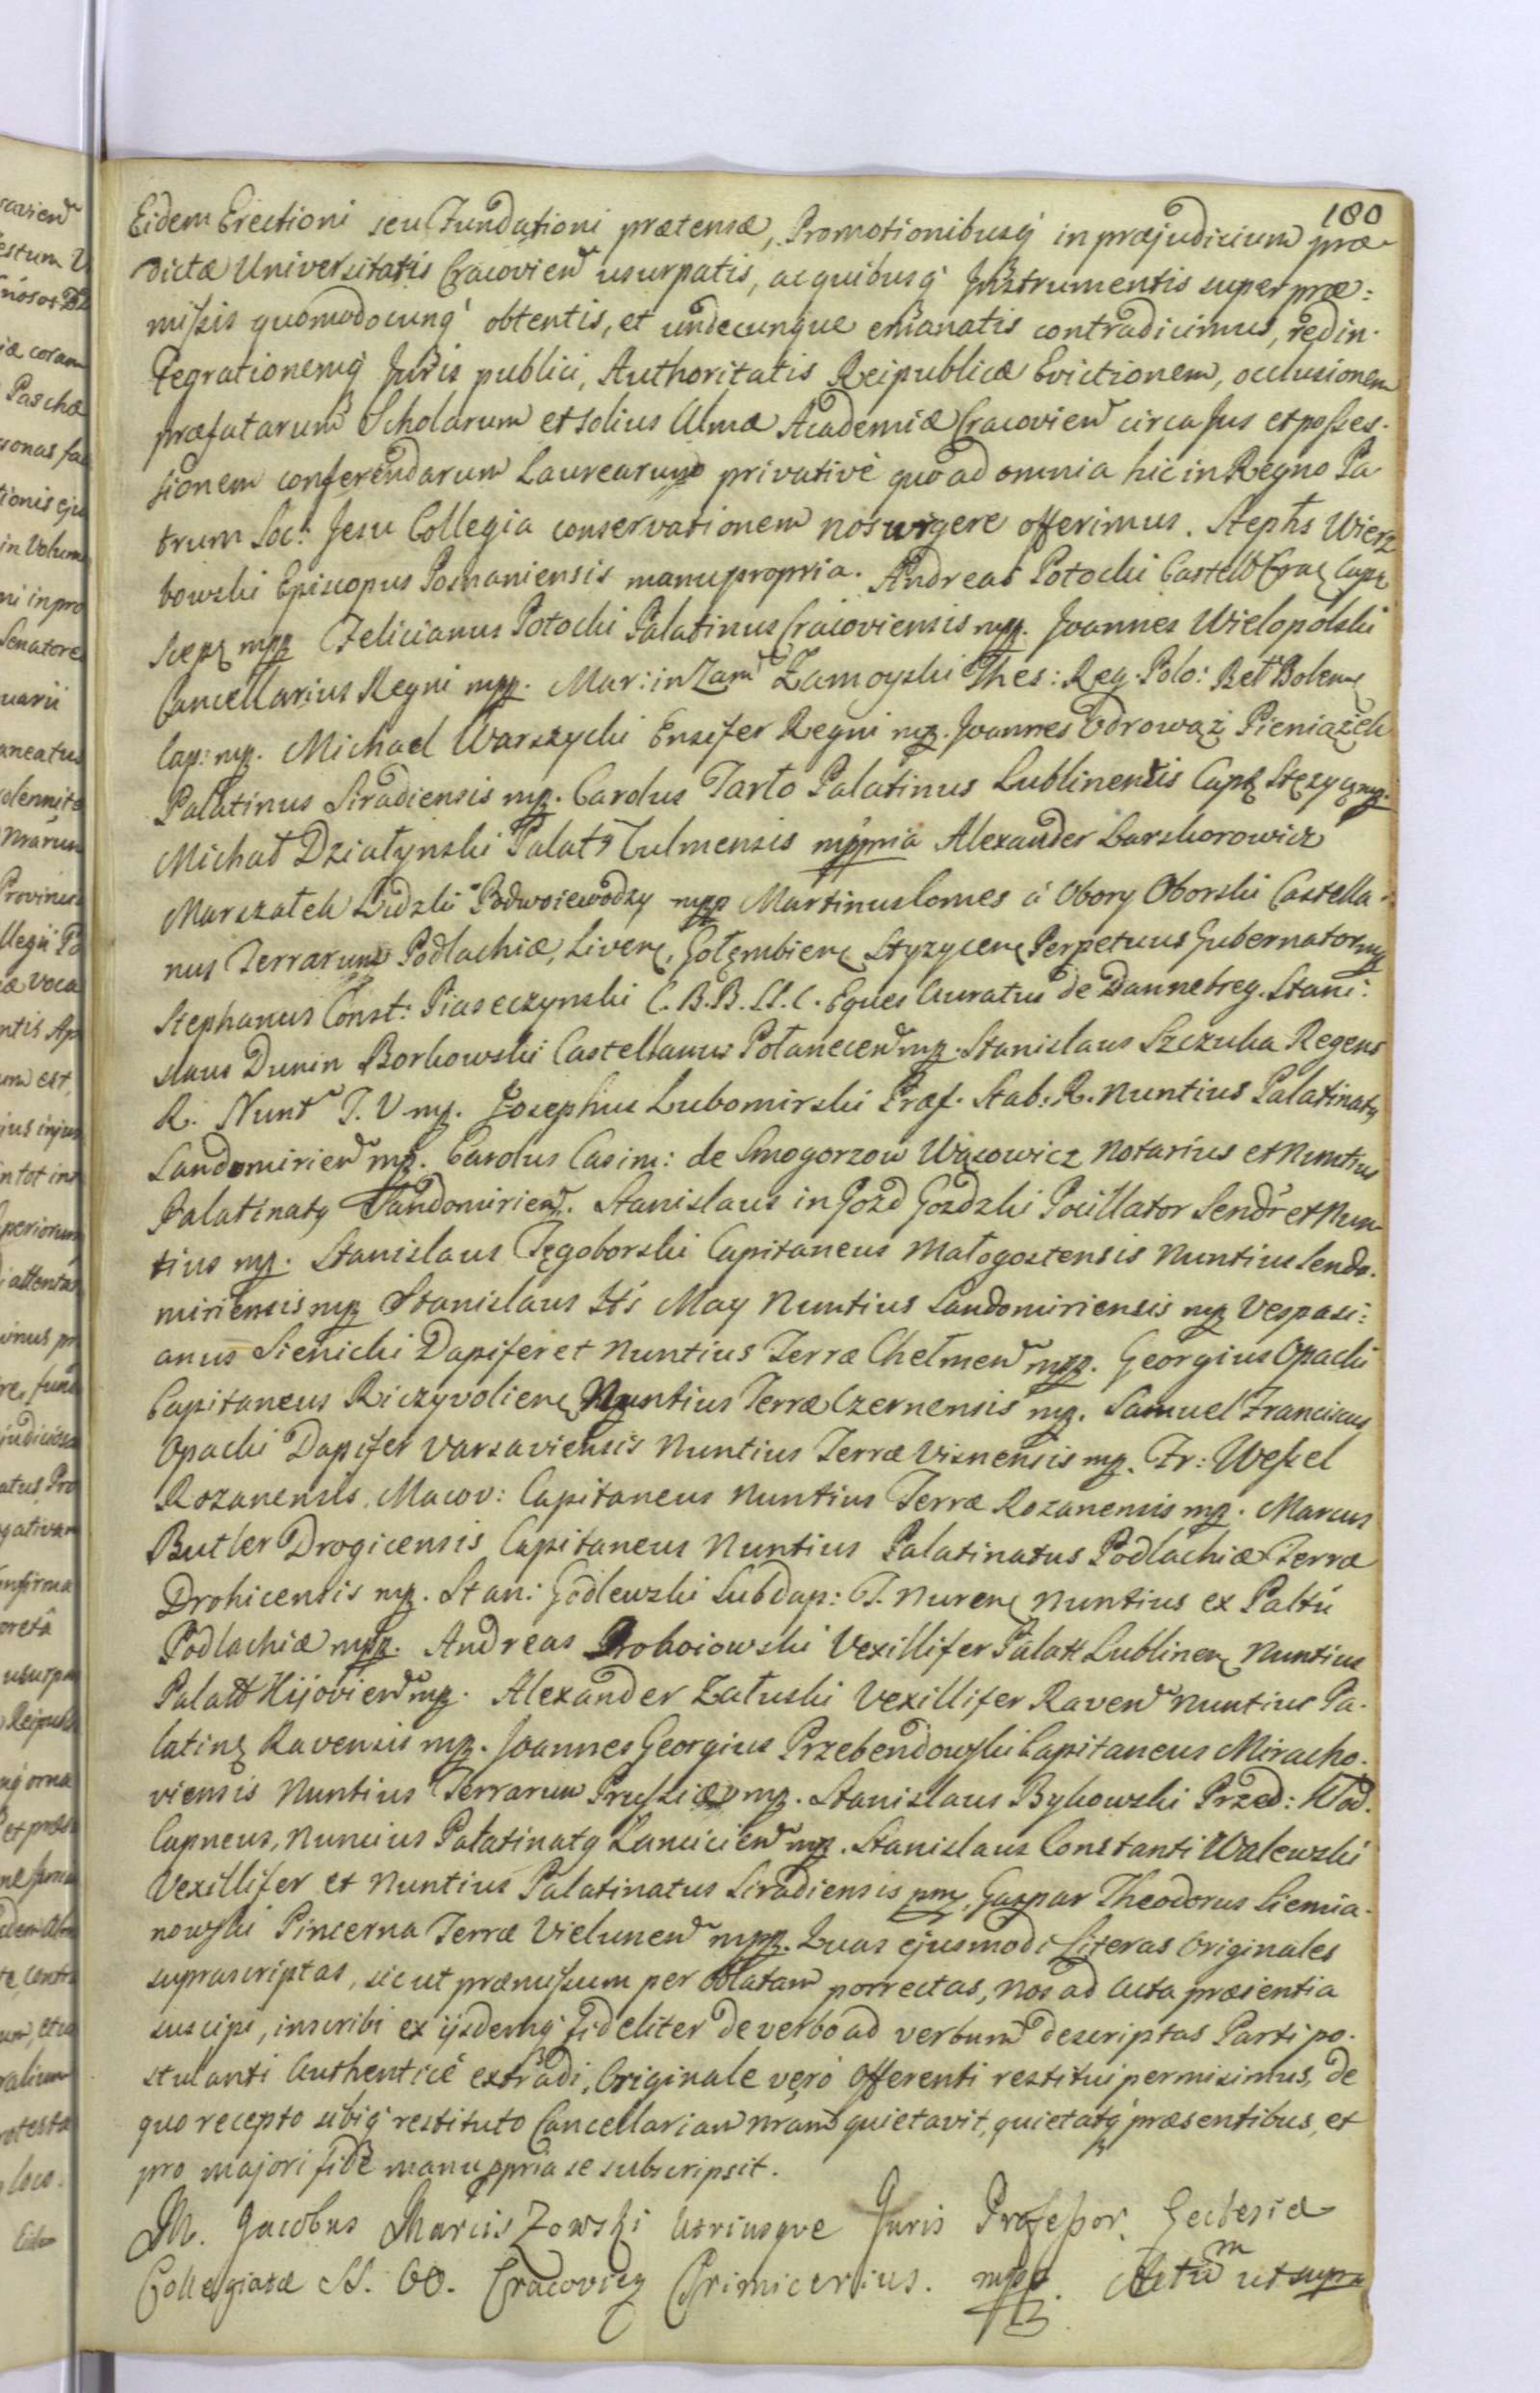 180
Eidem Erectioni seu Fundationi prætensæ, Promotionibusq́ in præjudicium præ-
dictæ Universitatis Cracovien̄ usurpatis, ac quibusq́ Instrumentis super præ:
missis quomodocunq́ obtentis, et undecunque emanatis contradicimus, redin-
tegrationemq́ Juris publici, Authoritatis Reipublicæ Evictionem, occlusionem
præfatarum Scholarum et solius Almæ Academiæ Cracovien̄ circa Jus et posses-
sionem conferendarum Laurearum privativè quo ad omnia hic in Regno Pa-
trum Soc: Jesu Collegia conservationem nos urgere offerimus. Stephs Wierz
bowski Episcopus Posnaniensis manu propria. Andreas Potocki Castell Crac Cap
Scep mpp Felicianus Potocki Palatinus Cracoviensis mpp. Joannes Wielopolski
Cancellarius Regni mpp. Mar: in Zam Zamoyski Thes: Reg. Polo: Bel Bolem
Cap: mp. Michael Warszycki Ensifer Regni mp. Joannes Odrowąż Pieniążek
Palatinus Siradiensis mp. Carolus Tarło Palatinus Lublinensis Cap Stęzyc mp.
Michał Działynski Palat Culmensis mppria Alexander Karskorowicz
Marszałek Lidzki Podwoiewodzy mpp Martinus Comes á Obory Oborski Castella-
nus Terrarum Podlachiæ, Liven, Gołęmbien Styzycen Perpetuus Gubernator mp
Stephanus Const: Piaseczynski C. B. B. Ll. C. Eques Auratus de Dannebreg. Stani:
slaus Dunin Borkowski Castellanus Połanecen̄ mp. Stanislaus Szczuka Regens
R. Nunt T. V mp. Josephus Lubomirski Præf. Stab: R. Nuntius Palatinatq
Sandomirien̄ mp. Carolus Casim: de Smogorzow Wąsowicz Notarius et Nuntius
Palatinatq Sandomirien. Stanislaus in Gozd Gozdzki Pocillator Send et Nun-
tius mp. Stanislaus Tęgoborski Capitaneus Małogostensis Nuntius Sendo-
miriensis mp Stanislaus May Nuntius Sandomiriensis mp Vespasi:
anus Sienicki Dapifer et Nuntius Terræ Chelmen̄ mpp. Georgius Opacki
Capitaneus Riczyvolien Nuntius Terræ Czernensis mp. Samuel Franciscus
Opacki Dapifer Varsaviensis Nuntius Terræ Visnensis mp. Fr: Wessel
Rozanensis, Macov: Capitaneus Nuntius Terræ Rozanensis mp. Marcus
Butler Drogicensis Capitaneus Nuntius Palatinatus Podlachiæ Terræ
Drohicensis mp. Stan: Godlewski Subdap: T. Nuren Nuntius ex Paltú
Podlachiæ mpp. Andreas Drohoiowski Vexillifer Palatt Lublinen Nuntius
Palatt Kijovien̄ mp. Alexander Załuski Vexillifer Raven̄ Nuntius Pa-
latinq Ravensis mp. Joannes Georgius Przebendowski Capitaneus Miracho-
viensis Nuntius Terrarum Prussiæ mp. Stanislaus Bykowski Przed: Kłod.
Capneus, Nuncius Palatinatq Lancicien̄ mp. Stanislaus Constanti Walewski
Vexillifer et Nuntius Palatinatus Siradiensis pmp. Gaspar Theodorus Siemia-
nowski Pincerna Terræ Vielunen̄ mpp. Quas ejusmodi Literas originales
suprascriptas, sicut præmissum per oblatam porrectas, nos ad Acta præsentia
suscipi, inscribi ex ijsdemq́ fideliter de verbo ad verbum descriptas Parti po-
stulanti Authenticè extradi, Originale verò Offerenti restitui permisimus, de
quo recepto sibiq́ restituto Cancellariam nram quietavit, quietatq́ præsentibus, et
pro majori fide manu ppria se subscripsit.
M. Jacobus Marciszowski Utriusque Juris Professor, Ecclesiæ
Collegiatæ SS. OO. Cracoviæ Primicerius. mpp. Actūm ut supra